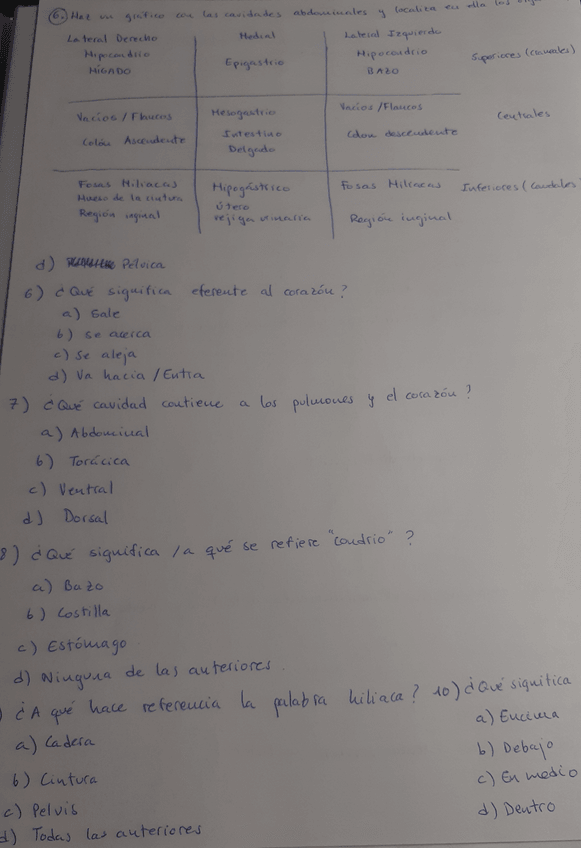 6. Haz un gráfico con las cavidades abdominales y localiza en ella los
Lateral Derecho Medial Lateral Izquierdo
Hipocondrio Epigastrio Hipocondrio Superiores (craneales)
HÍGADO BAZO
Vacíos / Flancos Mesogastrio Vacíos / Flancos Centrales
Colón Ascendente Intestino Delgado Colon descendente
Fosas Hiliacas Hipogástrico Fosas Hiliacas Inferiores (caudales
Hueso de la cintura Útero
Región inginal vejiga urinaria Región inginal
d) Pélvica
6) ¿Qué significa eferente al corazón?
a) Sale
b) se acerca
c) Se aleja
d) Va hacia / Entra
7) ¿Qué cavidad contiene a los pulmones y el corazón?
a) Abdominal
b) Torácica
c) Ventral
d) Dorsal
8) ¿Qué significa / a qué se refiere "condrio"?
a) Bazo
b) Costilla
c) Estómago
d) Ninguna de las anteriores.
) ¿A qué hace referencia la palabra hiliaca?
a) Cadera
b) Cintura
c) Pelvis
d) Todas las anteriores
10) ¿Qué significa
a) Encima
b) Debajo
c) En medio
d) Dentro